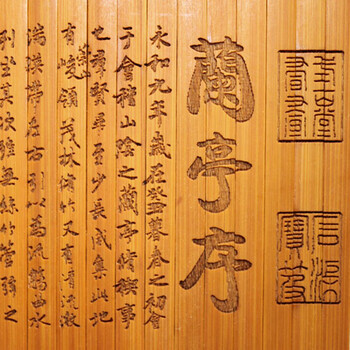 蘭亭序
永和九年歲在癸丑暮春之初會
于會稽山陰之蘭亭脩稧事
也羣賢畢至少長咸集此地
有崇山峻領茂林脩竹又有清流激
湍暎帶左右引以為流觴曲水
列坐其次雖無絲竹管弦之